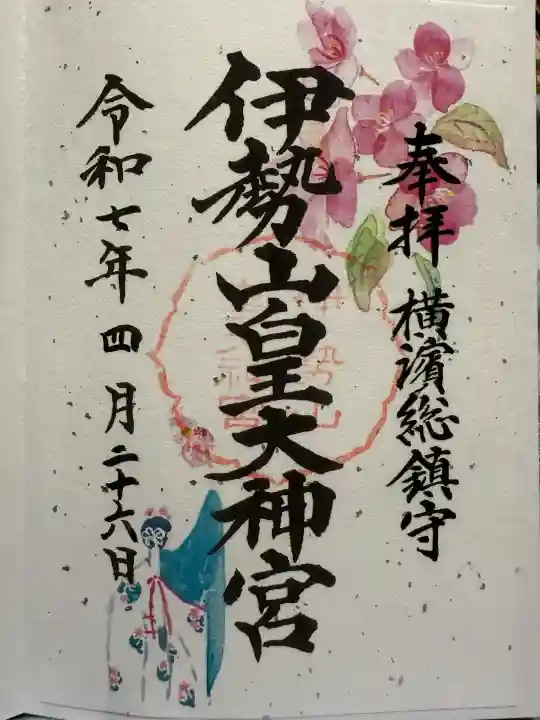 奉拝 横濱総鎮守
伊勢山皇大神宮
令和七年 四月二十六日